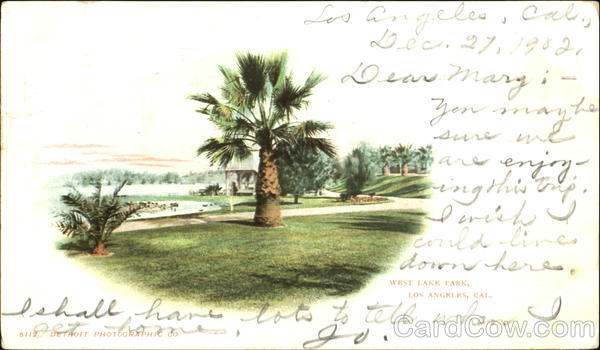 Los Angeles, Cal.,
Dec. 27, 1902.
Dear Mary; -
You may be
sure we
are enjoy-
ing this trip.
I wish I
could live
down here.
WEST LAKE PARK,
LOS ANGELES, CAL.
I shall have lots to tell when I
get home. Jo.
5112. DETROIT PHOTOGRAPHIC CO
CardCow.com